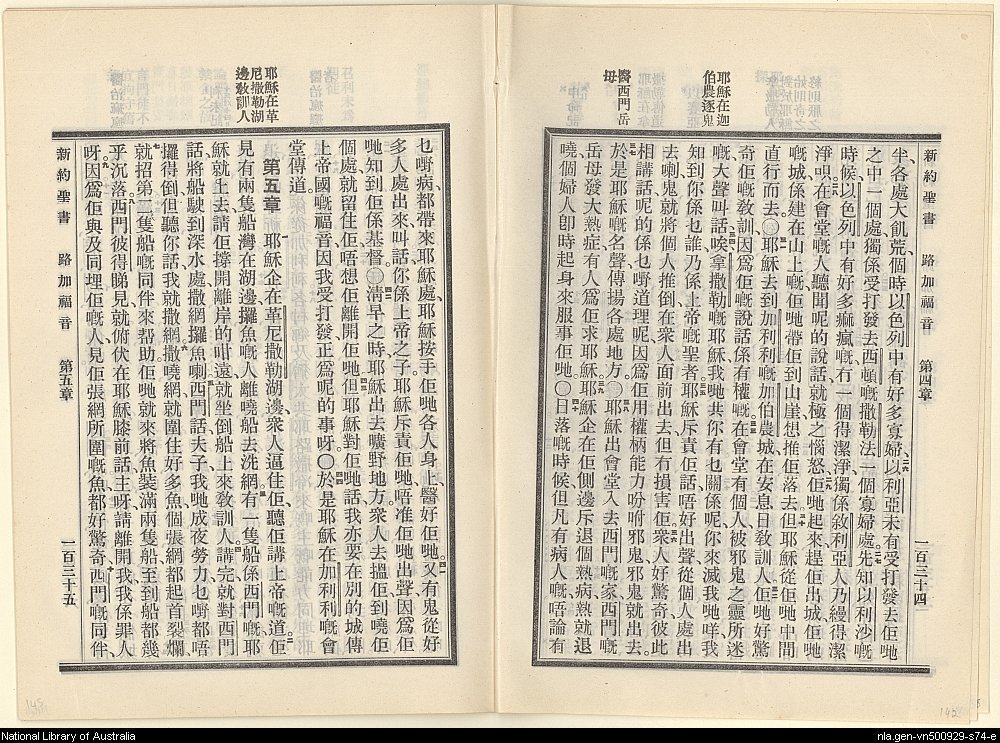 新約聖書 路加福音 第四章 一百三十四
半各處大飢荒個時以色列中有好多寡婦以利亞未有受打發去佢哋
之中一個處獨係受打發去西頓嘅撒勒法一個寡婦處先知以利沙嘅
時候以色列中有好多癩瘋嘅冇一個得潔淨獨係敘利亞人乃縵得潔
淨唄在會堂嘅人聽聞呢的說話就極之惱怒佢哋起來趕佢出城佢哋
嘅城係建在山上嘅佢哋帶佢到山崖想推佢落去但耶穌從佢哋中間
直行而去○耶穌去到加利利嘅加伯農城在安息日敎訓人佢哋好驚
奇佢嘅敎訓因爲佢嘅說話係有權嘅在會堂有個人被邪鬼之靈所迷
嘅大聲叫話唉拿撒勒嘅耶穌我哋共你有乜關係呢你來滅我哋咩我
知到你係乜誰乃係上帝嘅聖者耶穌斥責佢話唔好出聲從個人處出
去喇鬼就將個人推倒在衆人面前出去但冇損害佢衆人好驚奇彼此
相講話呢的係乜嘢道理呢因爲佢用權柄能力吩咐邪鬼邪鬼就出去
於是耶穌嘅名聲傳揚各處地方○耶穌出會堂入去西門嘅家西門嘅
岳母發大熱症有人爲佢求耶穌耶穌企在佢側邊斥退個熱病熱就退
嘵個婦人卽時起身來服事佢哋○日落嘅時候但凡有病人嘅唔論有
耶穌在迦
伯農逐鬼
醫西門岳
母
乜嘢病都帶來耶穌處耶穌按手佢哋各人身上醫好佢哋又有鬼從好
多人處出來叫話你係上帝之子耶穌斥責佢哋唔准佢哋出聲因爲佢
哋知到佢係基督○淸早之時耶穌出去曠野地方衆人去搵佢到嘵佢
個處就留住佢唔想佢離開佢哋但耶穌對佢哋話我亦要在別的城傳
上帝國嘅福音因我受打發正爲呢的事呀○於是耶穌在加利利嘅會
堂傳道
第五章 耶穌企在革尼撒勒湖邊衆人逼住佢聽佢講上帝嘅道佢
見有兩隻船灣在湖邊攞魚嘅人離嘵船去洗網有一隻船係西門嘅耶
穌就上去請佢撑開離岸的咁遠就坐倒船上來敎訓人講完就對西門
話將船駛到深水處撒網攞魚喇西門話夫子我哋成夜勞力乜嘢都唔
攞得倒但聽你話我就撒網撒嘵網就圍住好多魚個張網都起首裂爛
就招第二隻船嘅同伴來帮助佢哋就來將魚裝滿兩隻船至到船都幾
乎沉落西門彼得睇見就俯伏在耶穌膝前話主呀請離開我我係罪人
呀因爲佢與及同埋佢嘅人見佢張網所圍嘅魚都好驚奇西門嘅同伴
新約聖書 路加福音 第五章 一百三十五
耶穌在革
尼撒勒湖
邊敎訓人
145
142
National Library of Australia
nla.gen-vn500929-s74-e